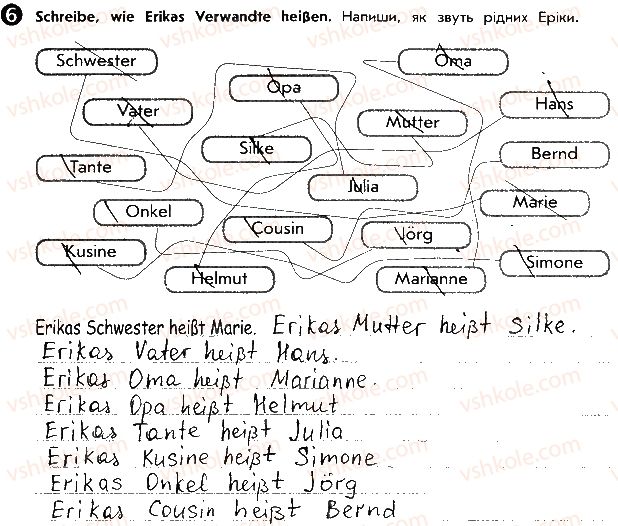 6 Schreibe, wie Erikas Verwandte heißen. Напиши, як звуть рідних Еріки.
Schwester
Oma
Opa
Vater
Hans
Mutter
Silke
Bernd
Tante
Julia
Marie
Onkel
Cousin
Jörg
Kusine
Simone
Helmut
Marianne
Erikas Schwester heißt Marie. Erikas Mutter heißt Silke.
Erikas Vater heißt Hans.
Erikas Oma heißt Marianne.
Erikas Opa heißt Helmut
Erikas Tante heißt Julia
Erikas Kusine heißt Simone
Erikas Onkel heißt Jörg
Erikas Cousin heißt Bernd
vshkole.com